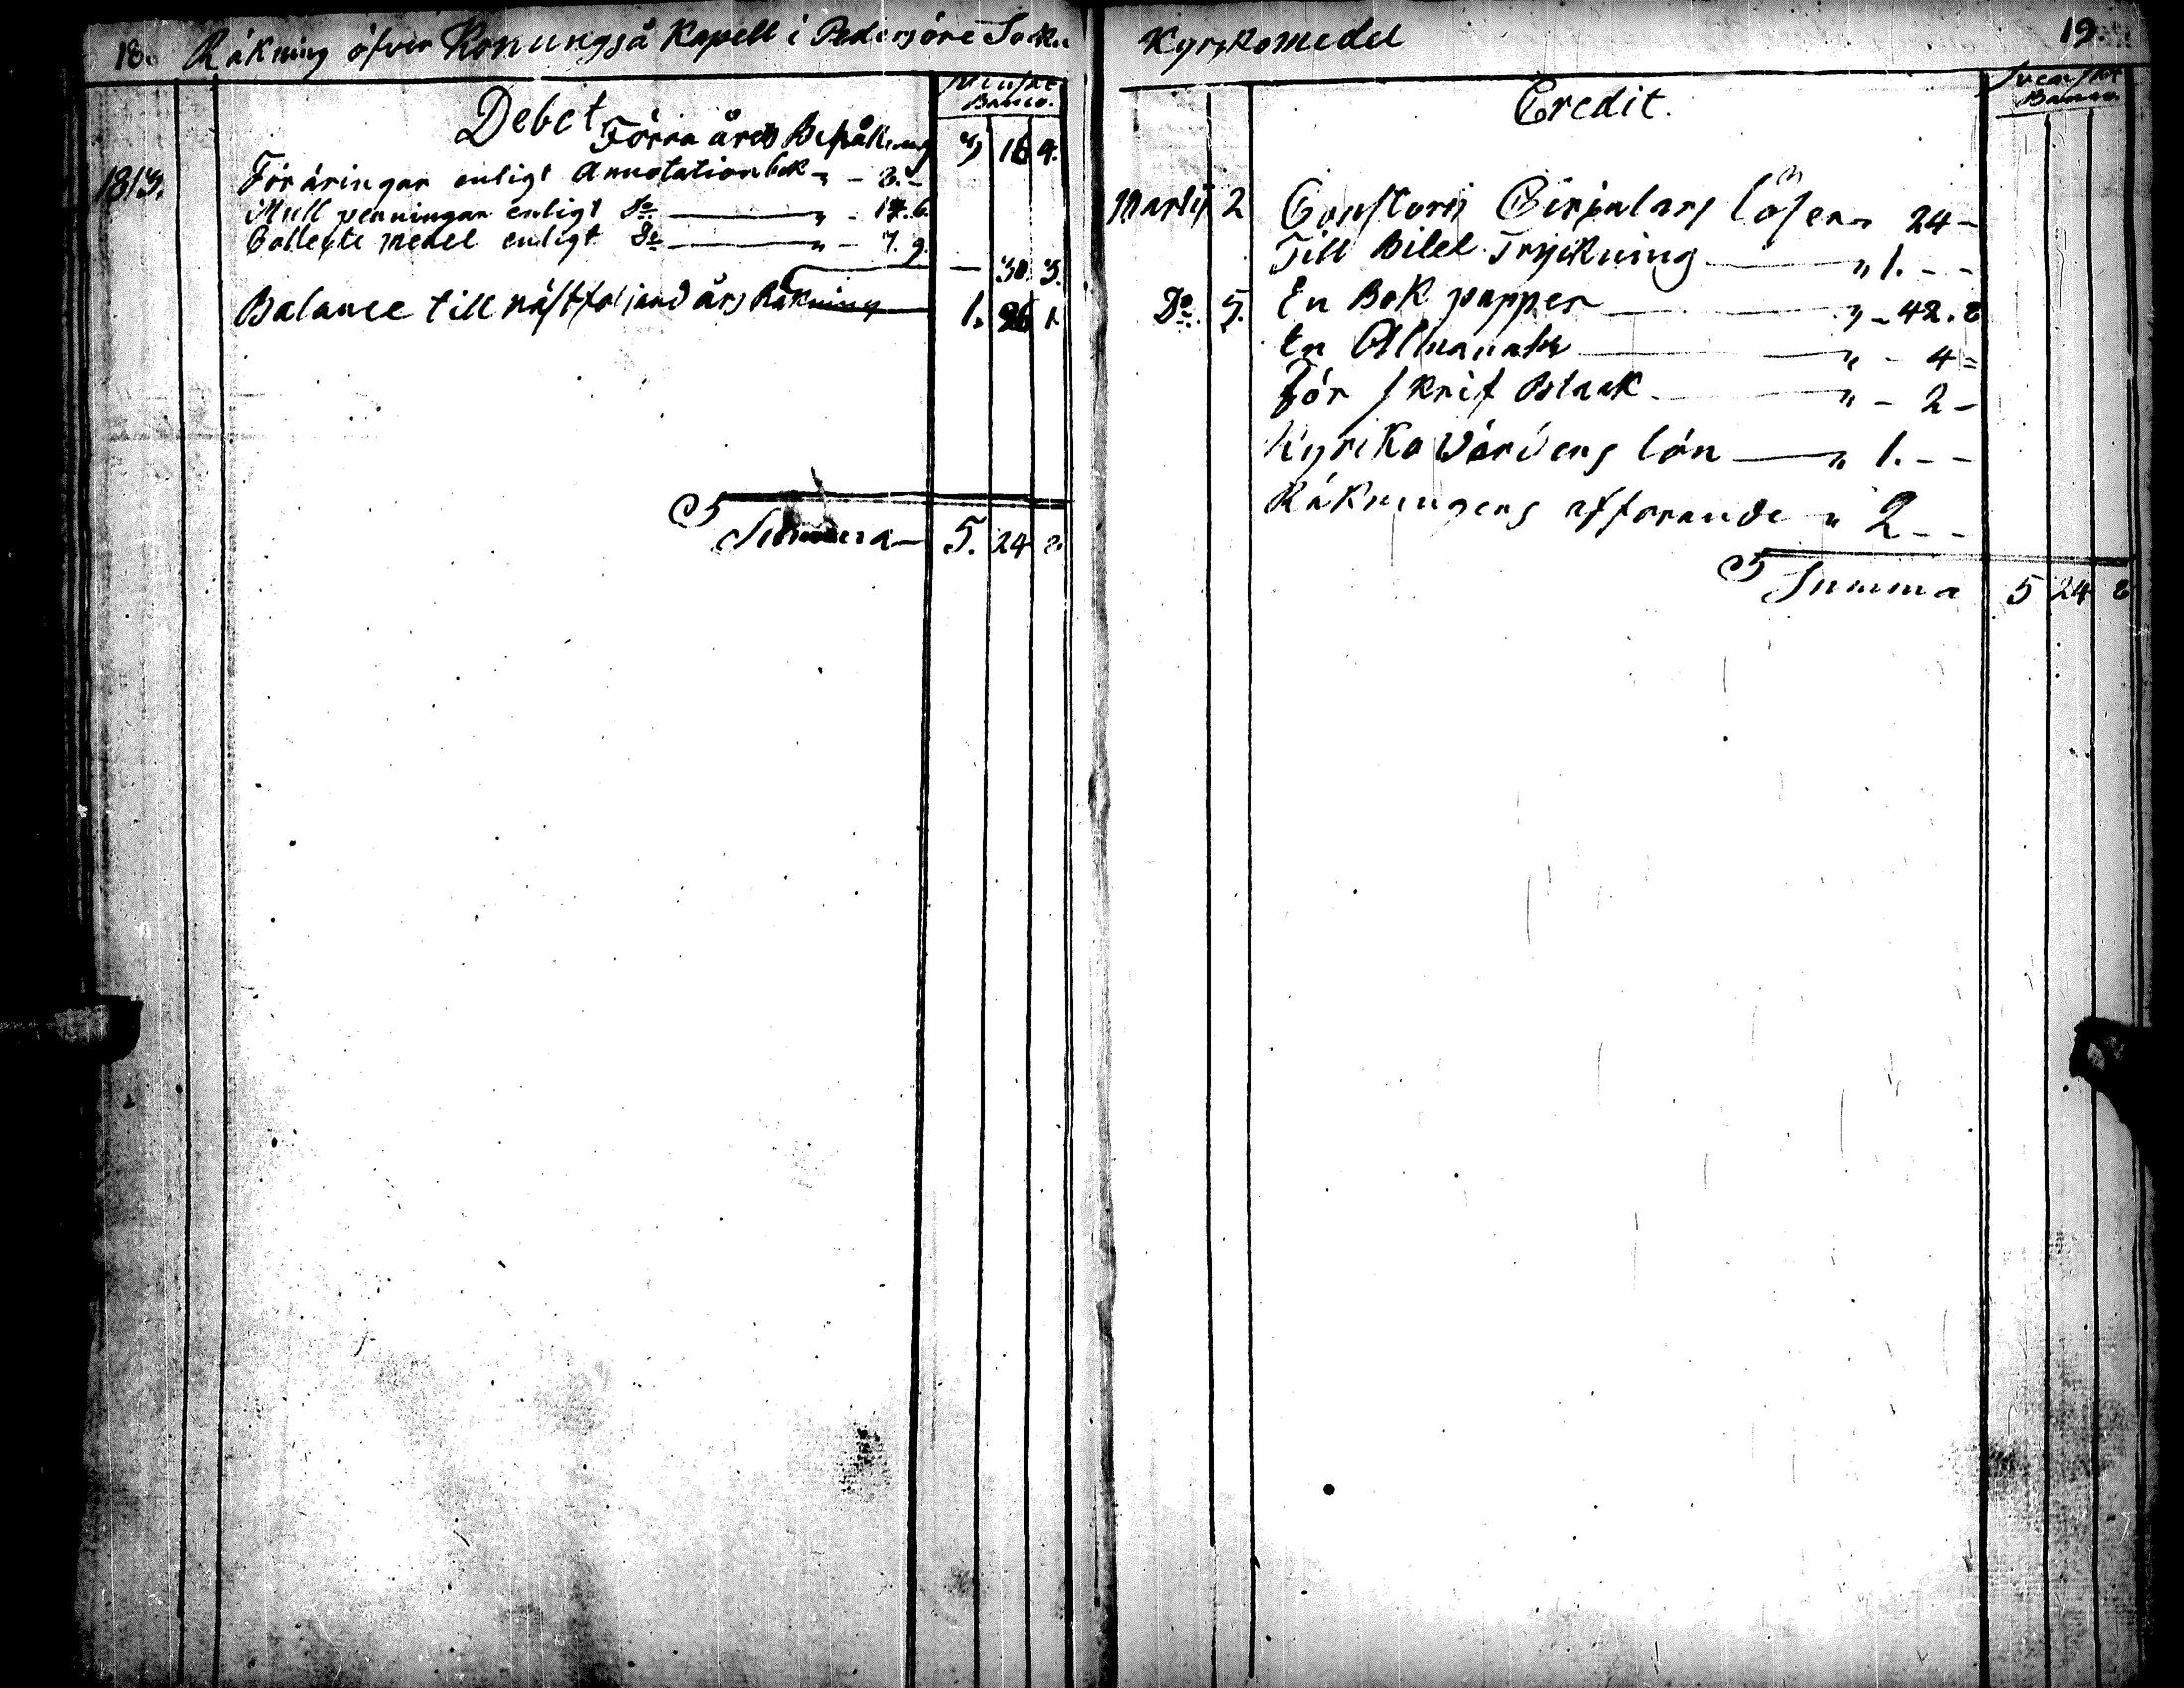 18. Räkning öfver Konungså Kapell i Pedersöre Sokn
Svenskt
Banco.
Debet
Förra årets Behållning 3 16 4.
1813. Föräringar enligt Annotationbok „ - 8. -
Mull penningar enligt Do „ - 14. 6.
Collecte medel enligt Do „ - 7. 9.
— 30. 3.
Balance till nästföljand års Räkning 1. 26 1.
Summa — 5. 24 8
Kyrkomedel 19.
Svenskt
Banco.
Credit.
Martij 2 Consistorij Cirkulars lösen „ 24 -
Till Bibel Tryckning „ 1. - -
Do. 5. En Bok papper „ - 42. 8
En Almanak „ - 4 -
För skrif Bläck „ - 2 -
Kyrko Värdens lön „ 1. - -
Räkningens afförande „ 2 - -
Summa 5 24 8